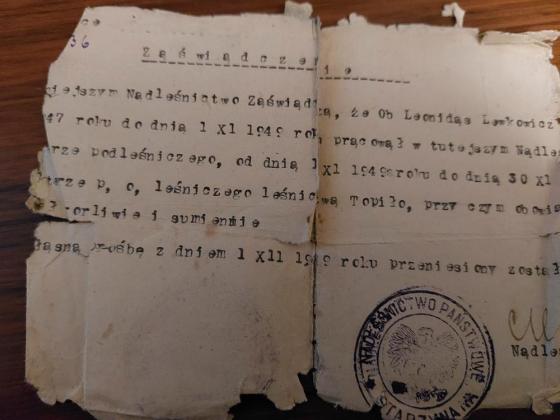 ce
36
Zaświadczenie
iejszym Nadleśnictwo Zaświadcza, że Ob Leonidas Lewkowicz
47 roku do dnia 1 XI 1949 roku pracował w tutejszym Nadleś
rze podleśniczego, od dnia 1 XI 1949 roku do dnia 30 XI
terze p, o, leśniczego leśnictwa Topiło, przy czym obowią
orliwie i sumiennie
łasną prośbę z dniem 1 XII 1949 roku przeniesiony został
NADLEŚNICTWO PAŃSTWOWE
STARZYNA
Nadleś